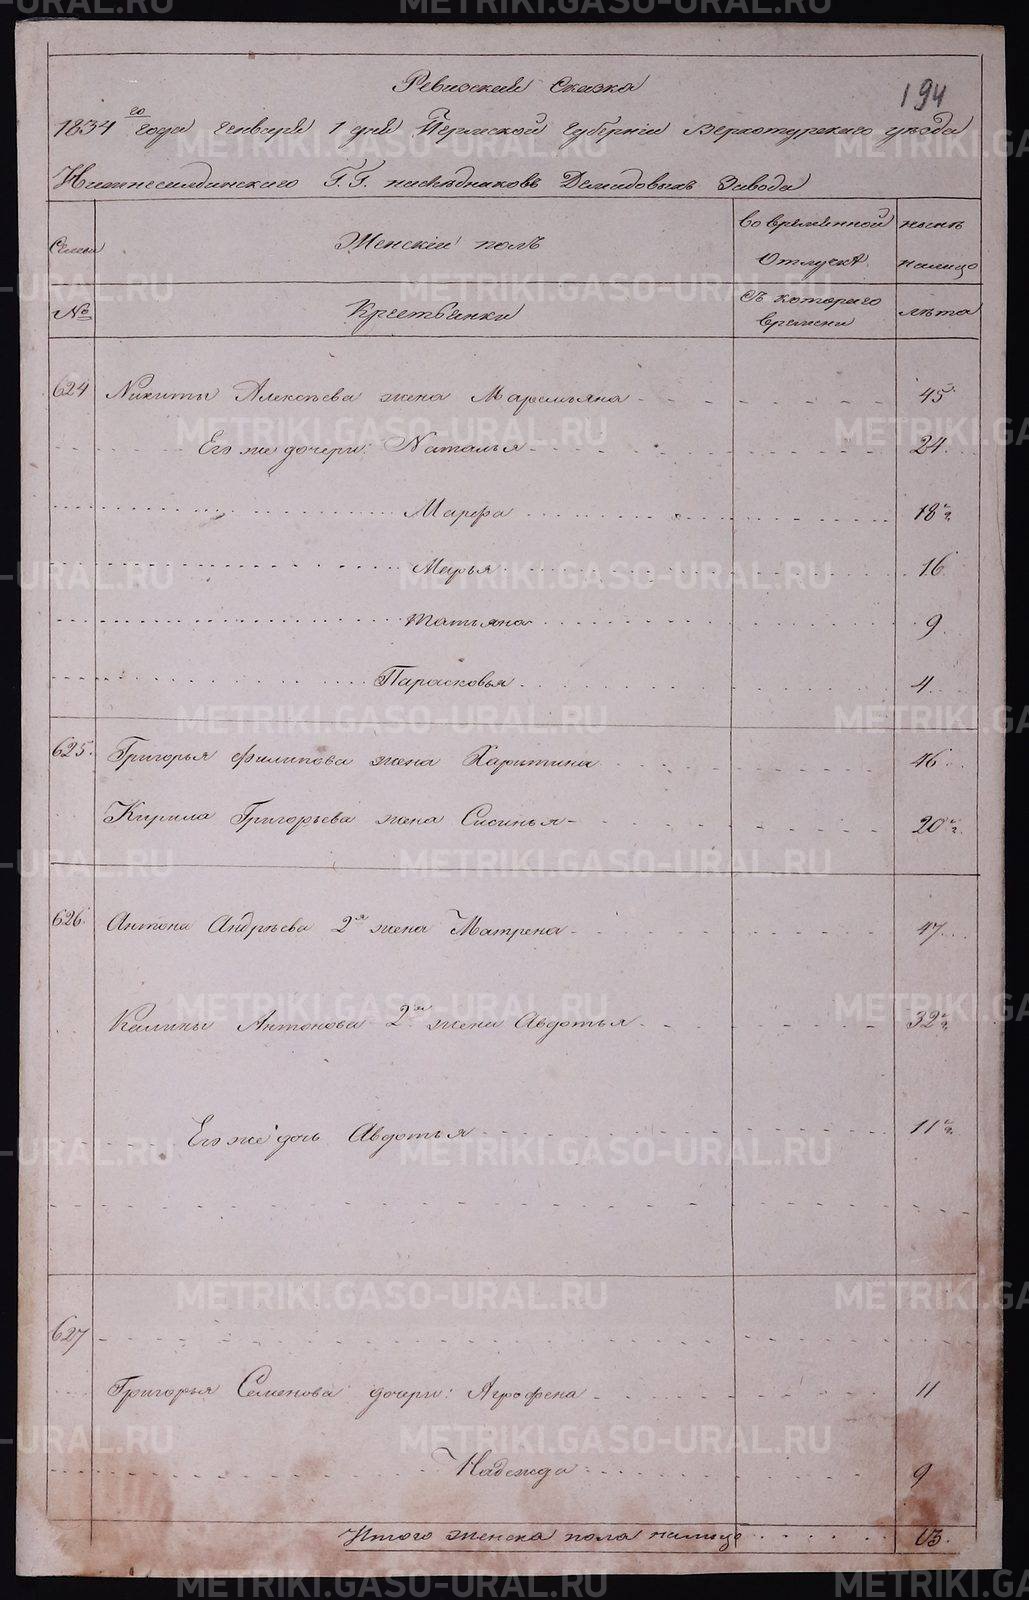 Ревизская Сказка
194
1834го года Генваря 1 дня Пермской Губернiи Верхотурскаго уѣзда
Нижнесалдинскаго Г.Г. наслѣдниковъ Демидовыхъ Завода
Семьи Женскiй полъ Во временной Отлучкѣ нынѣ налицо
№ Крестьянки Съ котораго времени лѣта
624 Никиты Алексѣева жена Маремьяна 45
Его же дочери: Наталья 24
Марфа 18 1/2
Марья 16
Татьяна 9
Парасковья 4
625. Григорья Филипова жена Харитина 46
Кирила Григорьева жена Сисинья 20 1/2
626. Антона Андрѣева 2я жена Матрена 47
Калины Антонова 2я жена Авдотья 32 1/2
Его же дочь Авдотья 11 1/2
627
Григорья Семенова дочери: Агрофена 11
Надежда 9
Итого женска пола налицо 13.
METRIKI.GASO-URAL.RU